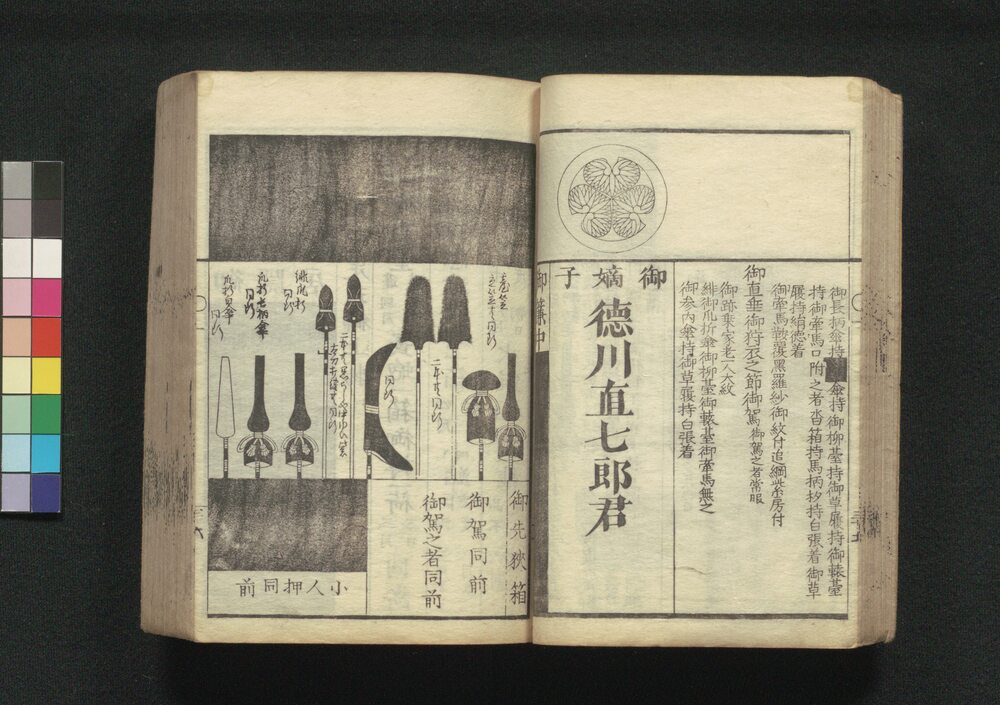 御長柄傘持傘持御柳臺持御草履持御轅臺
持御牽馬口附之者沓箱持馬柄杓持白張着御草
履持絹德着
御牽馬鞍覆黑羅紗御紋付追綱紫房付
御直垂御狩衣之節御駕御駕之者常服
御跡乗家老一人大紋
緋御爪折傘御柳臺御轅臺御牽馬無之
御参内傘持御草履持白張着
御嫡子
德川直七郎君
御簾中
御先狹箱
御駕同前
御駕之者同前
二本共同断
同断
同断
同断
同断
小人押同前